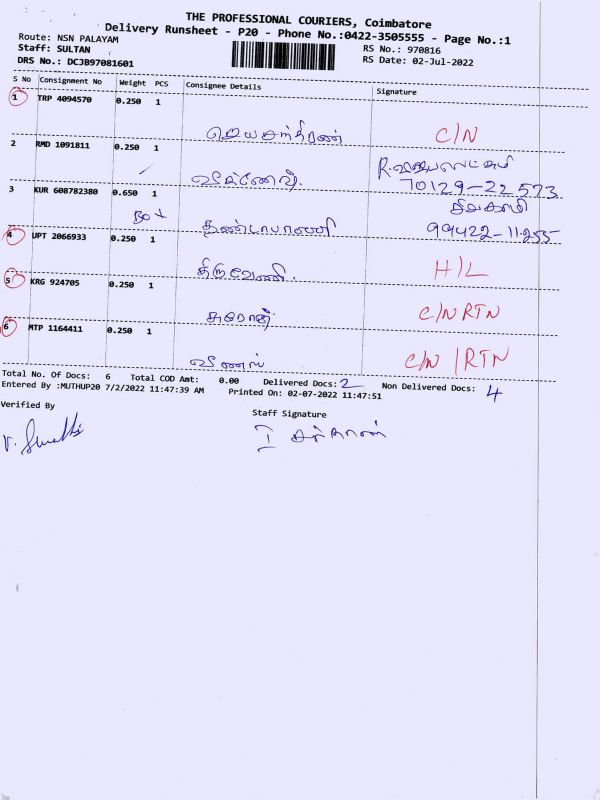 THE PROFESSIONAL COURIERS, Coimbatore
Delivery Runsheet - P20 - Phone No.:0422-3505555 - Page No.:1
Route: NSN PALAYAM
RS No.: 970816
Staff: SULTAN
RS Date: 02-Jul-2022
DRS No.: DCJB97081601
S No Consignment No Weight PCS Consignee Details Signature
1 TRP 4094570 0.250 1
ஜெயசந்திரன் C/N
2 RMD 1091811 0.250 1
R.
70129-22573
3 KUR 608782380 0.650 1
Box
தண்டபாணி 99422-11255
4 UPT 2066933 0.250 1
திருவேணி. H/L
5 KRG 924705 0.250 1
சுரேஷ் C/N RTN
6 MTP 1164411 0.250 1
C/N /RTN
Total No. Of Docs: 6 Total COD Amt: 0.00 Delivered Docs: 2 Non Delivered Docs: 4
Entered By :MUTHUP20 7/2/2022 11:47:39 AM Printed On: 02-07-2022 11:47:51
Verified By
Staff Signature